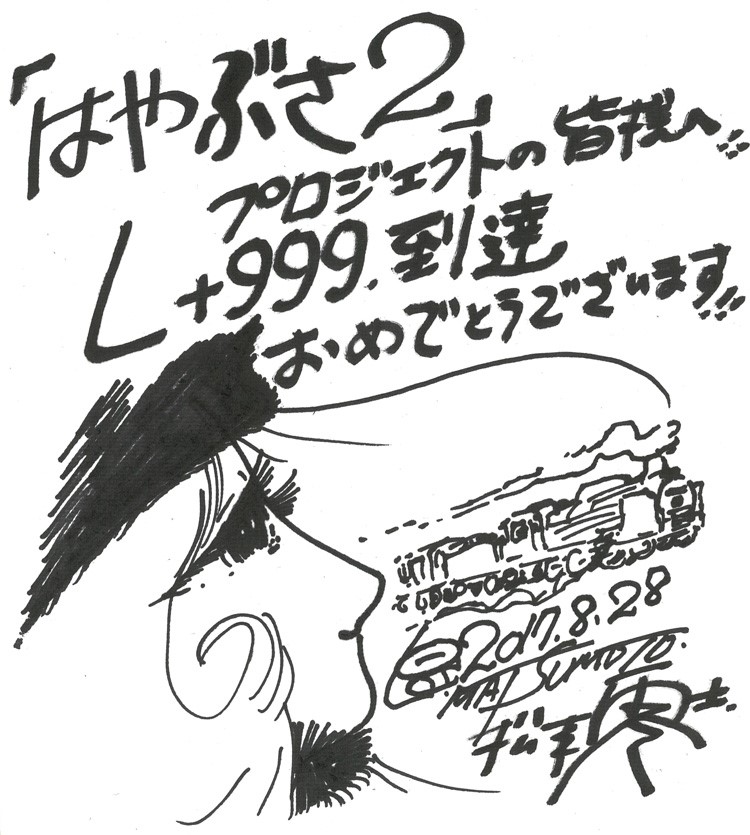 「はやぶさ2」
プロジェクトの皆様へ!!
L+999.到達
おめでとうございます!!
2017.8.28
MATSUMOTO.
松本零士.